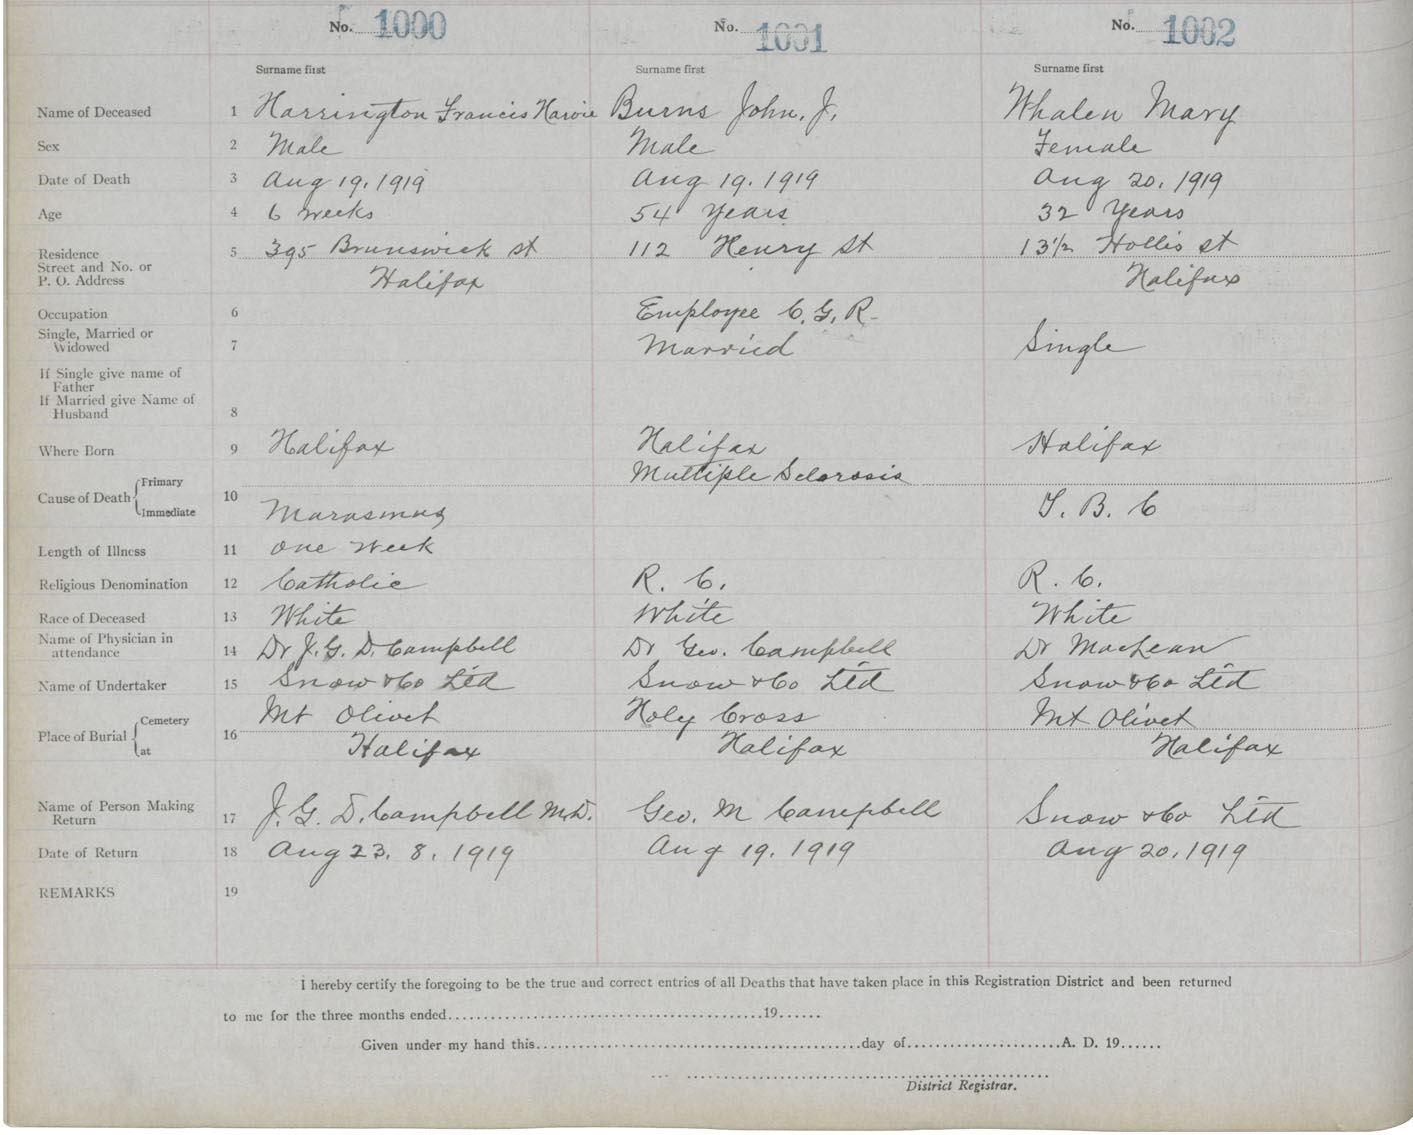 No. 1000 No. 1001 No. 1002
Surname first Surname first Surname first
Name of Deceased 1 Harrington Francis Harvie Burns John, J. Whalen Mary
Sex 2 Male Male Female
Date of Death 3 Aug 19, 1919 Aug 19, 1919 Aug 20, 1919
Age 4 6 weeks 54 Years 32 Years
Residence 5 395 Brunswick st 112 Henry St 13½ Hollis st
Street and No. or
P. O. Address Halifax Halifax
Occupation 6 Employee C. G. R.
Single, Married or
Widowed 7 Married Single
If Single give name of
Father
If Married give Name of
Husband 8
Where Born 9 Halifax Halifax Halifax
Primary Multiple Sclorosis
Cause of Death 10
Immediate Marasmus T. B. C
Length of Illness 11 one week
Religious Denomination 12 Catholic R. C. R. C.
Race of Deceased 13 White White White
Name of Physician in
attendance 14 Dr J. G. D. Campbell Dr Geo. Campbell Dr MacLean
Name of Undertaker 15 Snow & Co Ltd Snow & Co Ltd Snow & Co Ltd
Cemetery Mt Olivet Holy Cross Mt Olivet
Place of Burial 16
at Halifax Halifax Halifax
Name of Person Making
Return 17 J. G. D. Campbell M.D. Geo. M Campbell Snow & Co Ltd
Date of Return 18 Aug 23, 8, 1919 Aug 19, 1919 Aug 20, 1919
REMARKS 19
I hereby certify the foregoing to be the true and correct entries of all Deaths that have taken place in this Registration District and been returned
to me for the three months ended 19
Given under my hand this day of A. D. 19
District Registrar.